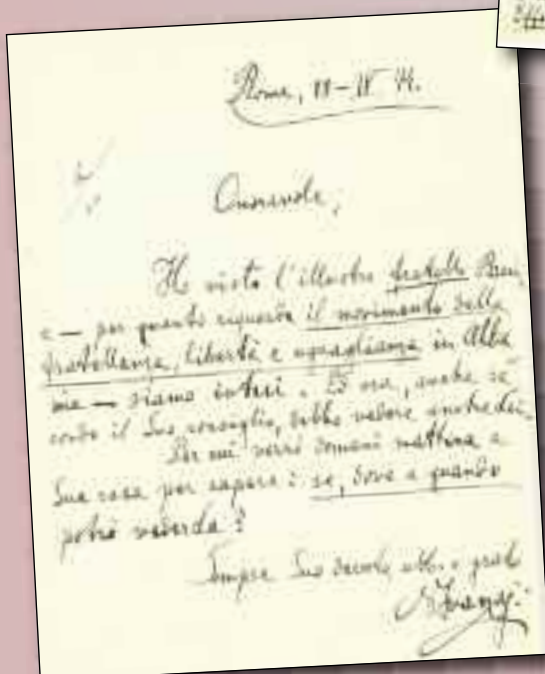 Roma, 11-IV 44.
Onorevole,
Ho visto l'illustre fratello
e — per quanto riguarda il movimento della
fratellanza, libertà e uguaglianza in Alba
nia — siamo intesi. Ed ora, anche se
condo il Suo consiglio, debbo vedere anche
Per cui verrò domani mattina a
Sua casa per sapere: se, dove e quando
potrò vederla?
Sempre Suo